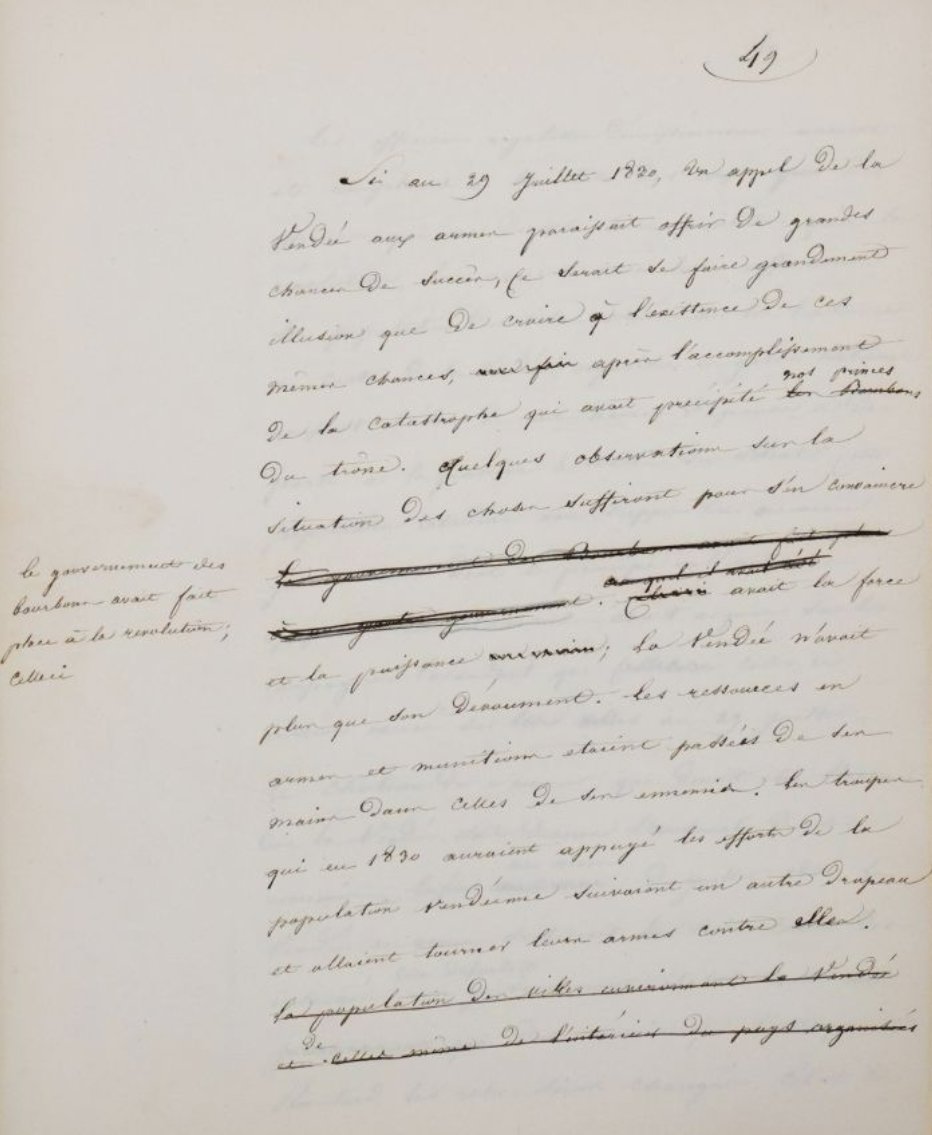 49
Si au 29 Juillet 1830, un appel de la
Vendée aux armes paraissait offrir de grandes
chances de succès, ce serait se faire grandement
illusion que de croire à l'existence de ces
mêmes chances, après l'accomplissement
nos princes
de la catastrophe qui avait précipité les Bourbons
du trône. Quelques observations sur la
situation des choses suffiront pour s'en convaincre
le gouvernement des
bourbons avait fait
place à la revolution;
celleci
Le gouvernement des Bourbons avait fait place
auquel il avait été
gouvernement. avait la force
et la puissance ; la Vendée n'avait
plus que son dévoument. les ressources en
armes et munitions etaient passées de ses
mains dans celles de ses ennemis. les troupes
qui en 1830 auraient appuyé les efforts de la
population vendéenne suivaient un autre drapeau
et allaient tourner leurs armes contre elles.
la population des villes environnant la Vendée
de
et celles même de l'intérieur du pays organisées